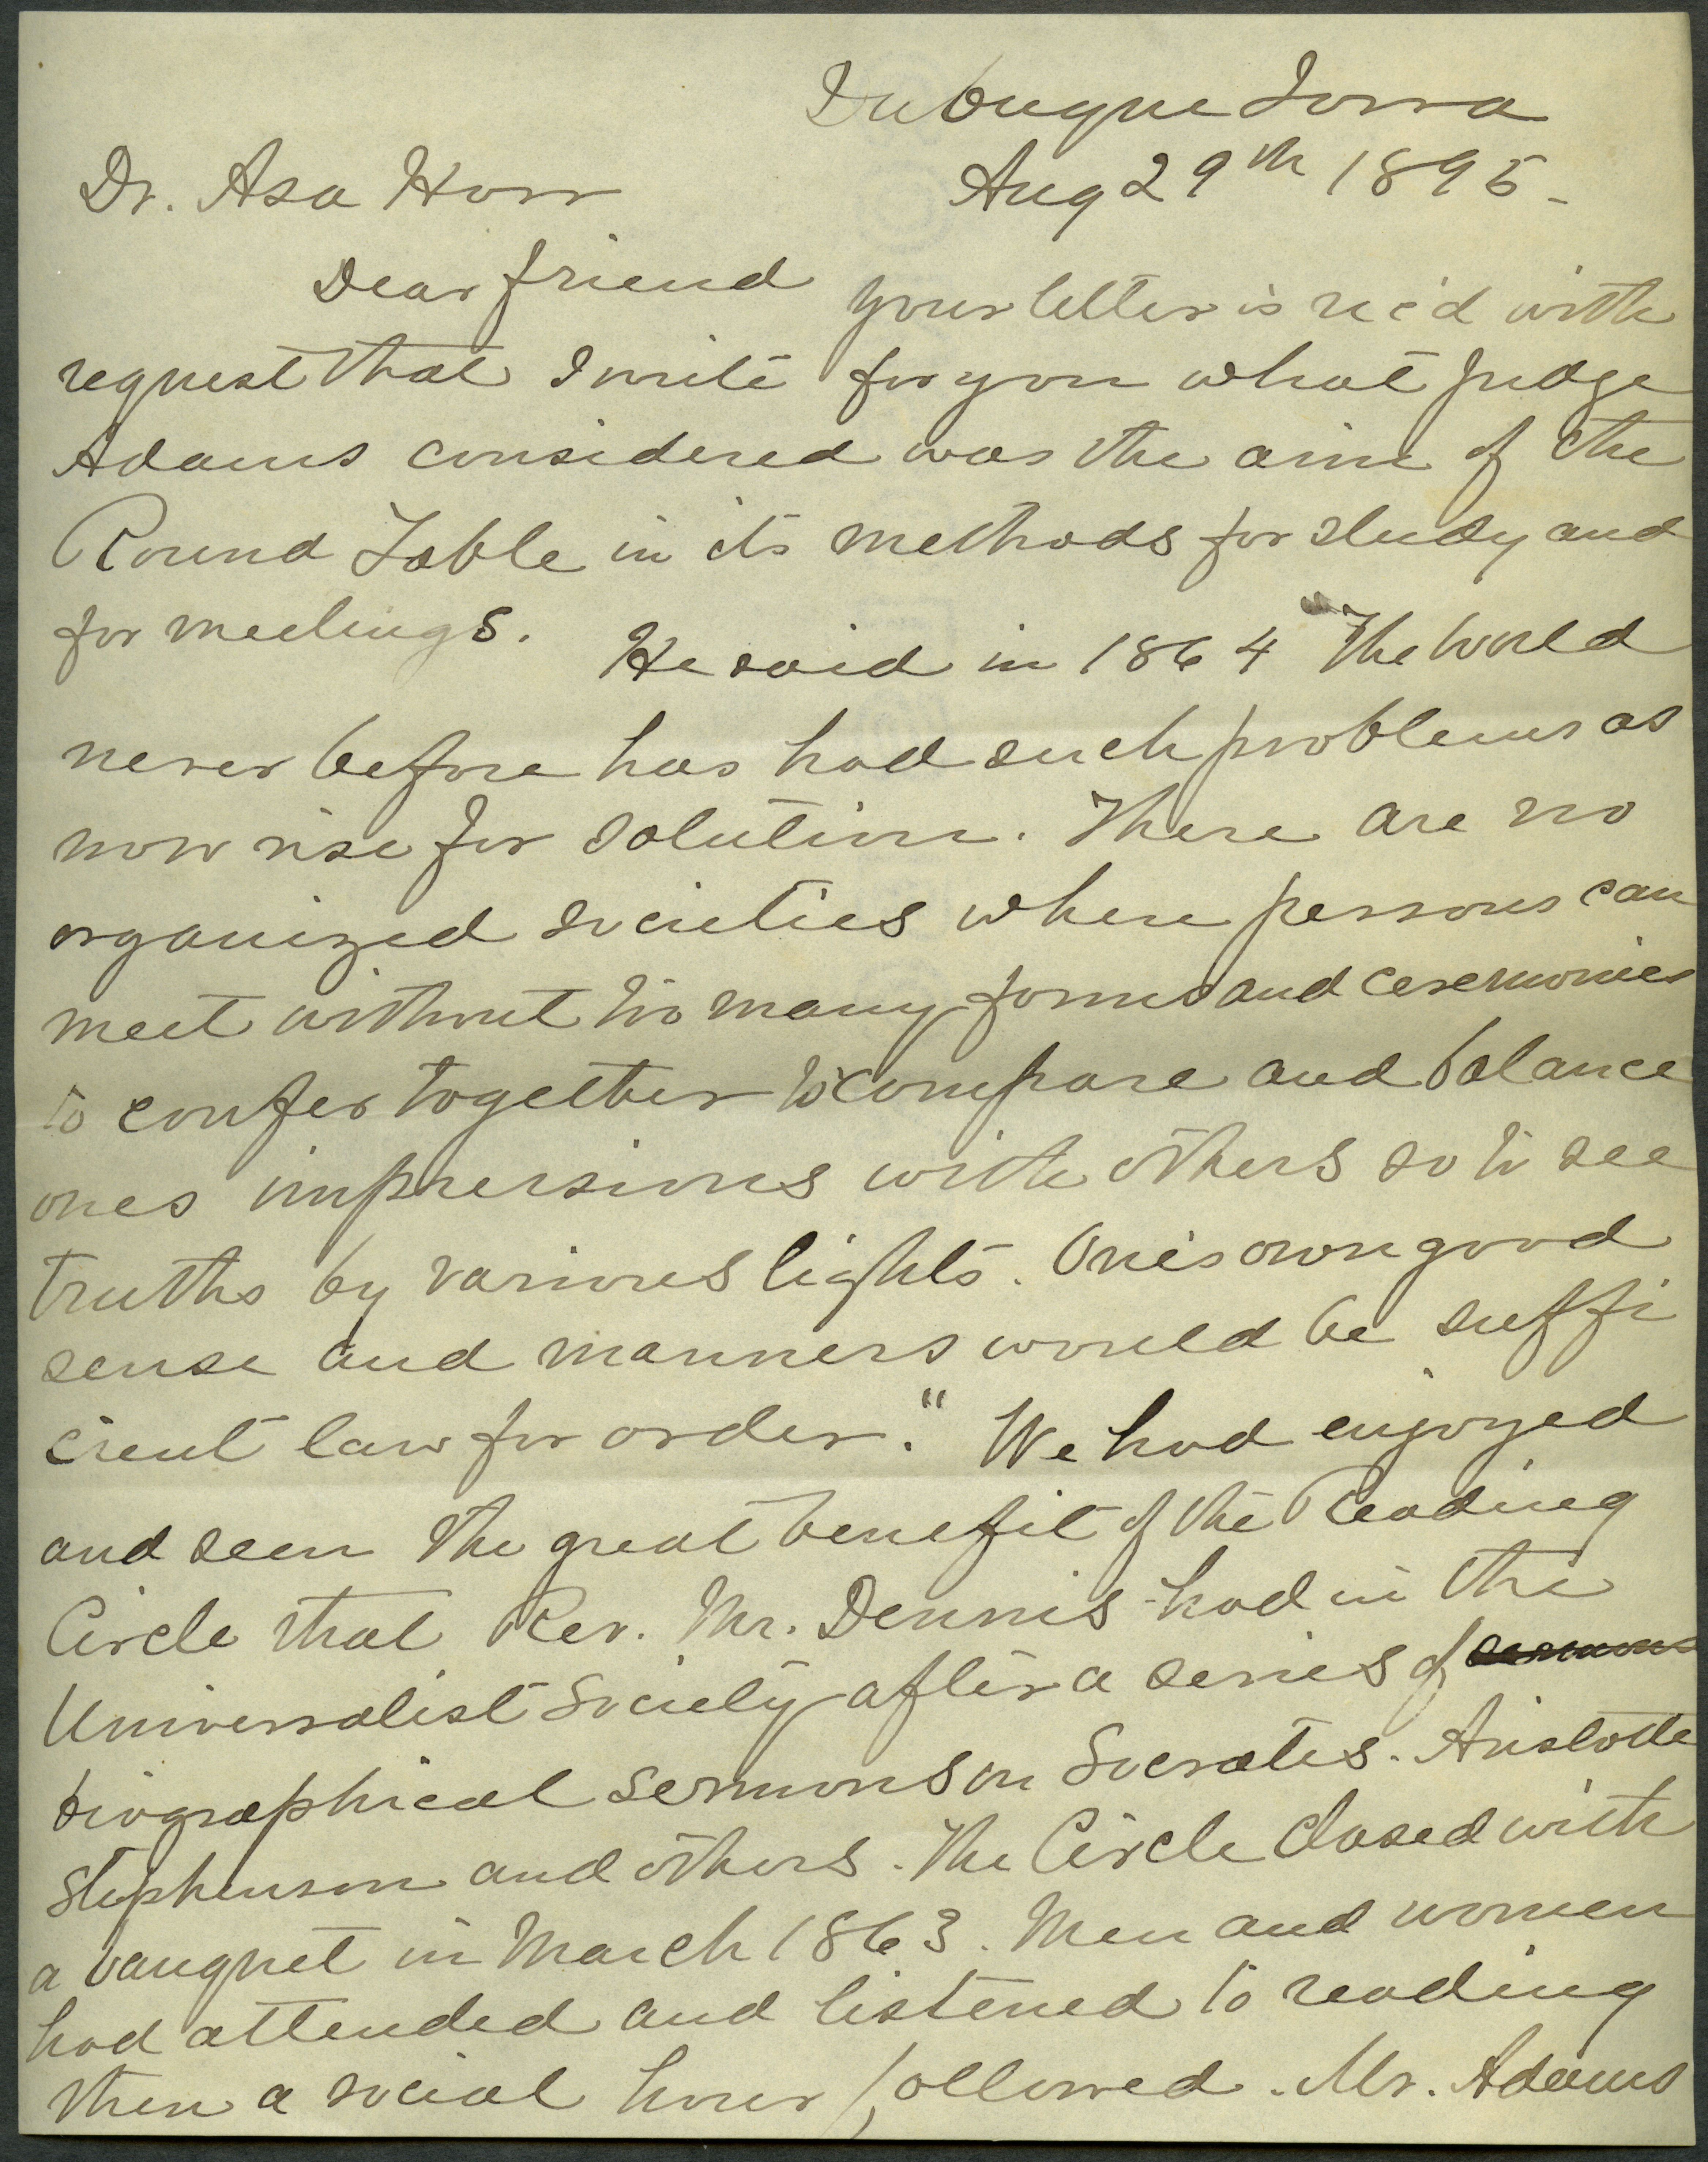 Dubuque Iowa
Dr. Asa Horr Aug 29th 1895-
Dear friend your letter is rec'd with
request that I write for you what Judge
Adams considered was the aim of the
Round Table in its methods for study and
for meetings. He said in 1864 "The World
never before has had such problems as
now rise for solution. There are no
organized societies where persons can
meet without too many forms and ceremonies
to confer together to compare and balance
ones impressions with others so to see
truths by various lights. One's own good
sense and manners would be suffi
cient law for order." We had enjoyed
and seen the great benefit of the Reading
Circle that Rev. Mr. Dennis had in the
Universalist Society after a series of sermons
biographical sermons on Socrates. Aristotle
Stephenson and others. The Circle closed with
a banquet in March 1863. Men and women
had attended and listened to reading
then a social hour followed. Mr. Adams